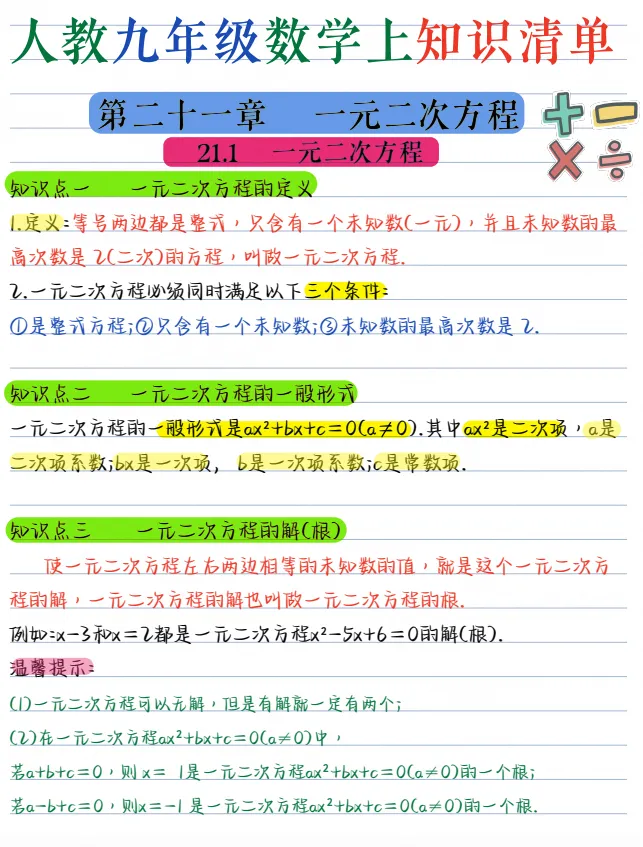 人教九年级数学上知识清单
第二十一章 一元二次方程
21.1 一元二次方程
知识点一 一元二次方程的定义
1.定义:等号两边都是整式，只含有一个未知数(一元)，并且未知数的最
高次数是2(二次)的方程，叫做一元二次方程.
2.一元二次方程必须同时满足以下三个条件:
①是整式方程;②只含有一个未知数;③未知数的最高次数是2.
知识点二 一元二次方程的一般形式
一元二次方程的一般形式是ax²+bx+c=0(a≠0).其中ax²是二次项，a是
二次项系数;bx是一次项，b是一次项系数;c是常数项.
知识点三 一元二次方程的解(根)
使一元二次方程左右两边相等的未知数的值，就是这个一元二次方
程的解，一元二次方程的解也叫做一元二次方程的根.
例如:x-3和x=2都是一元二次方程x²-5x+6=0的解(根).
温馨提示:
(1)一元二次方程可以无解，但是有解就一定有两个;
(2)在一元二次方程ax²+bx+c=0(a≠0)中，
若a+b+c=0，则x= 1是一元二次方程ax²+bx+c=0(a≠0)的一个根;
若a-b+c=0，则x=-1是一元二次方程ax²+bx+c=0(a≠0)的一个根.